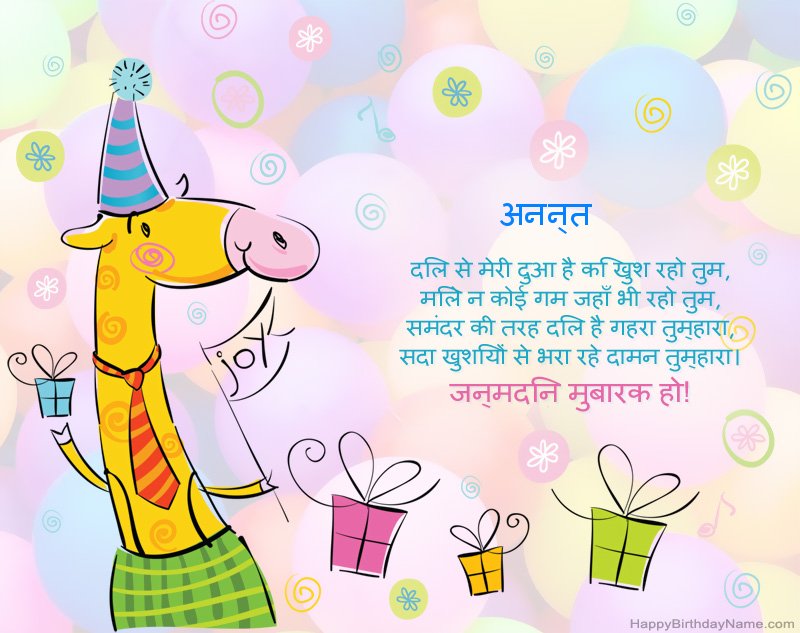 अनन्त
दिल से मेरी दुआ है कि खुश रहो तुम,
मिले न कोई गम जहाँ भी रहो तुम,
समंदर की तरह दिल है गहरा तुम्हारा,
सदा खुशियों से भरा रहे दामन तुम्हारा।
जन्मदिन मुबारक हो!
joy
HappyBirthdayName.com